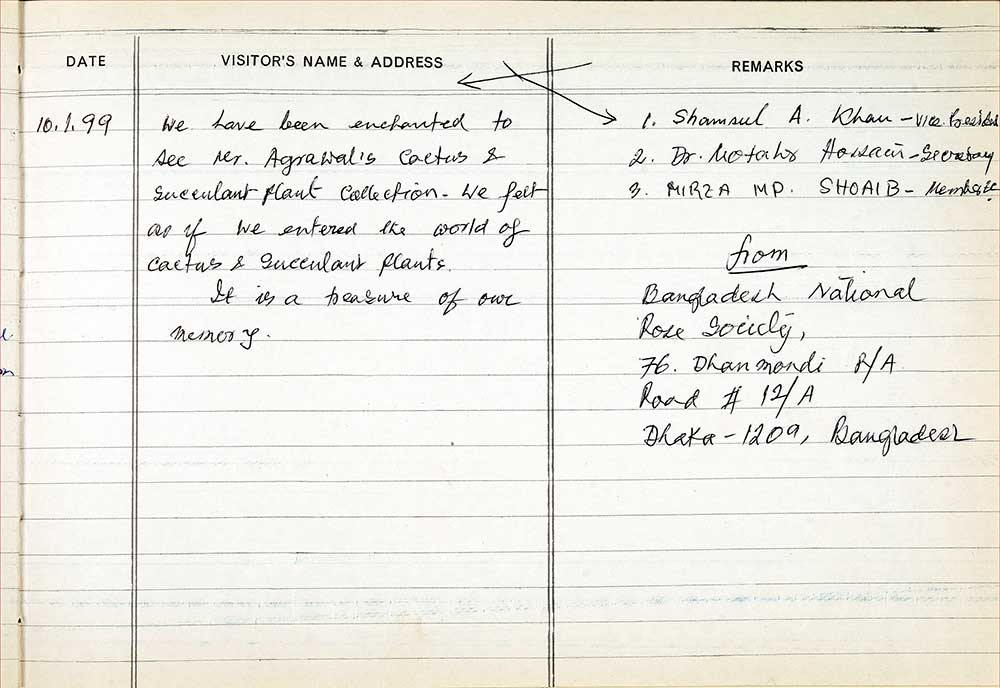 DATE
VISITOR'S NAME & ADDRESS
REMARKS
10.1.99
We have been enchanted to
see Mr. Agrawalis Cactus &
Succulant Plant Collection. We felt
as if we entered the world of
Cactus & Succulant Plants.
It is a treasure of our
memory.
1. Shamsul A. Khan - Vice President
2. Dr. Hossain - Secretary
3. MIRZA MD. SHOAIB -
from
Bangladesh National
Rose Society,
76. Dhanmondi R/A
Road # 12/A
Dhaka - 1209, Bangladesh